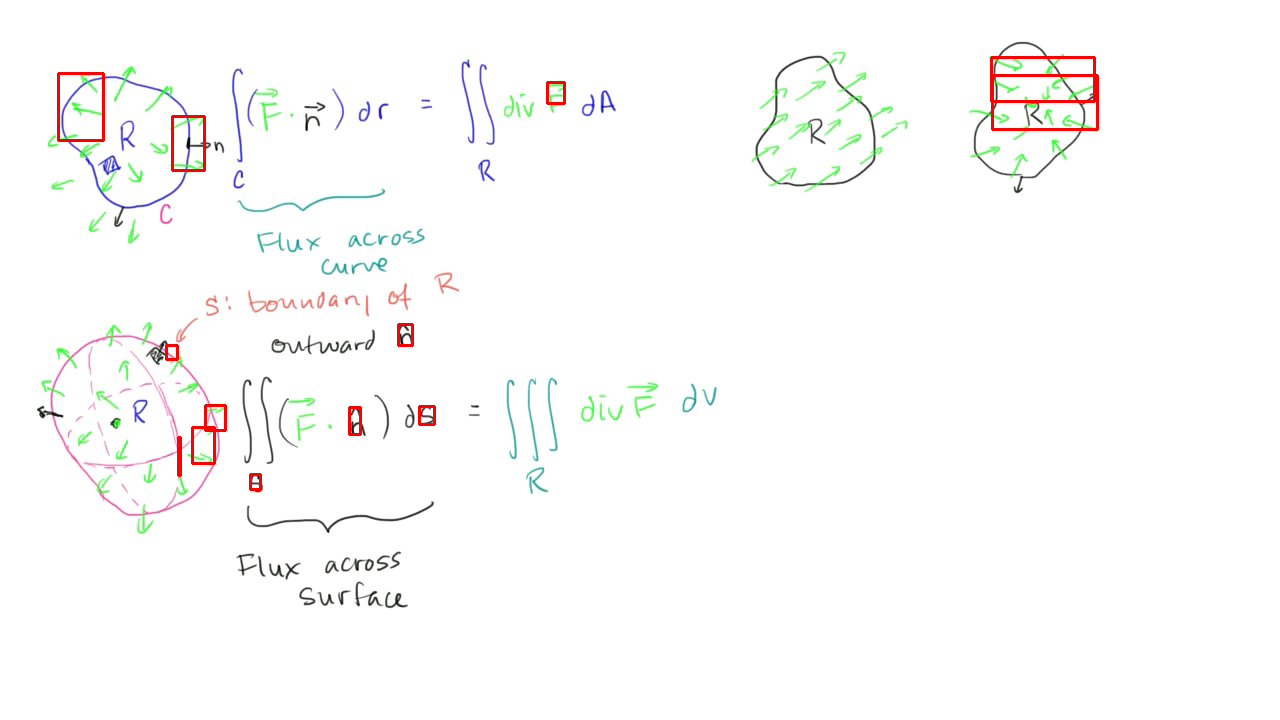 R
n
C
∫_C (F⃗ · n⃗) dr = ∬_R div F dA
Flux across
curve
R
R
S: boundary of R
outward n̂
R
∬_S (F⃗ · n̂) dS = ∭_R div F⃗ dV
Flux across
surface